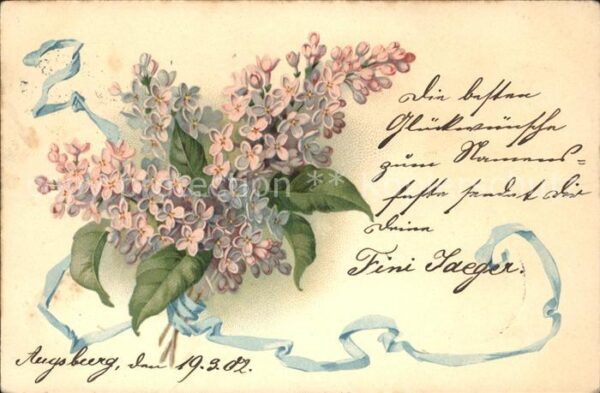 Die besten
Glückwünsche
zum Namens-
feste sendet Dir
Deine
Fini Jaeger.
Augsburg, den 19.3.02.